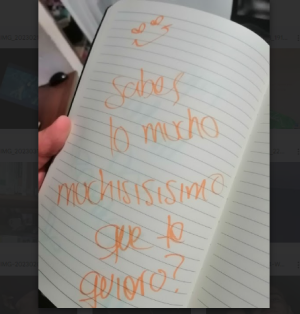 sabes
lo mucho
muchisisisimo
que te
quiero?